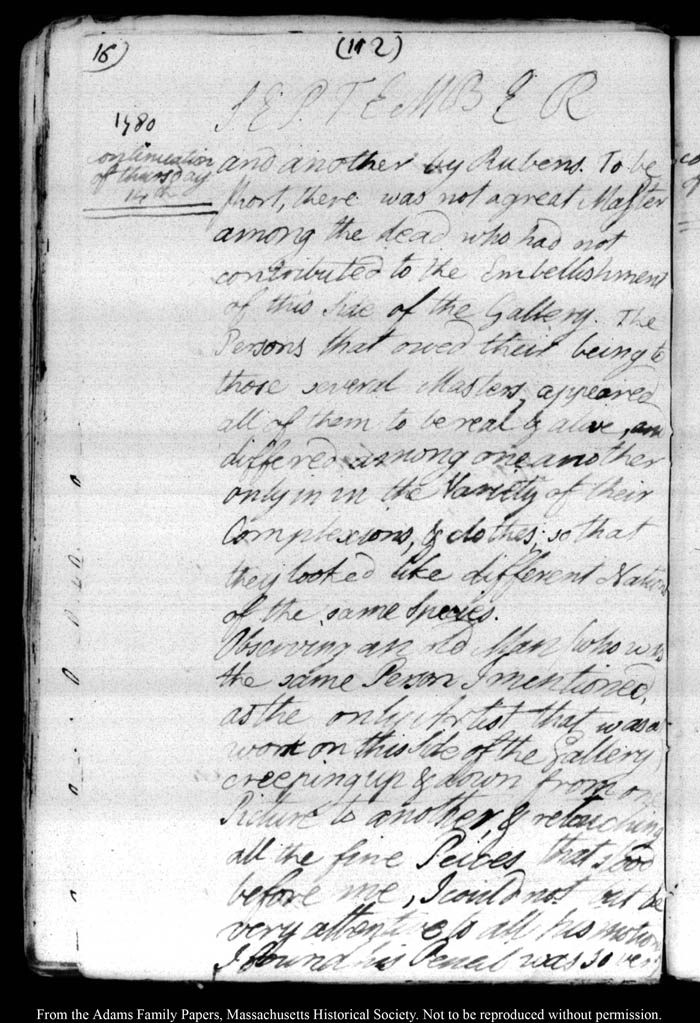 16) (112)
SEPTEMBER
1780
continuation
of thursday
14th
and another by Rubens. To be
short, there was not a great Master
among the dead who had not
contributed to the Embellishment
of this side of the Gallery. The
Persons that owed their being to
those several Masters, appeared
all of them to be real & alive, and
differed among one another
only in in the Variety of their
Complexions, & clothes; so that
they looked like different Nations
of the same Species.
Observing an old Man (who was
the same Person I mentioned,
as the only Artist that was at
work on this side of the Gallery)
creeping up & down from one
Picture to another, & retouching
all the fine Peices that stood
before me, I could not but be
very attentive to all his motions
I found his Pencil was so very
From the Adams Family Papers, Massachusetts Historical Society. Not to be reproduced without permission.